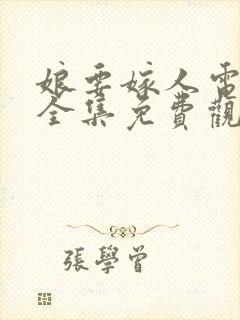 娘要嫁人電
全集免費觀
張學曾